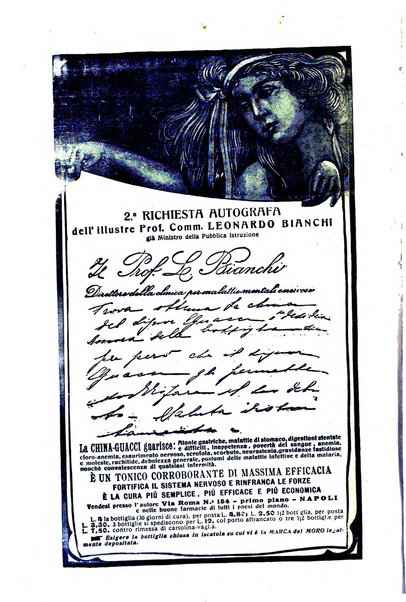 2.ª RICHIESTA AUTOGRAFA
dell'illustre Prof. Comm. LEONARDO BIANCHI
già Ministro della Pubblica Istruzione
Il Prof. L. Bianchi
Direttore della clinica per malattie mentali e nervose
Trova ottima la china
del Signor Guacci
della bottiglia
per però che il signor
Guacci gli permette
Saluta
La CHINA-GUACCI guarisce: Atonie gastriche, malattie di stomaco, digestioni stentate
e difficili, inappetenza, povertà del sangue, anemia,
cloro-anemia, esaurimento nervoso, scrofola, scorbuto, neurastenia, gravidanze fastidiose
e moleste, rachitide, debolezza generale, postumi delle malattie infettive e della malaria,
nonchè convalescenza di qualsiasi infermità.
È UN TONICO CORROBORANTE DI MASSIMA EFFICACIA
FORTIFICA IL SISTEMA NERVOSO E RINFRANCA LE FORZE
È LA CURA PIÙ SEMPLICE, PIÙ EFFICACE E PIÙ ECONOMICA
Vendesi presso l'autore Via Roma N.º 154 - primo piano - NAPOLI
e nelle buone farmacie di tutti i paesi del mondo.
L. 4 la bottiglia (30 giorni di cura), per posta L. 4,80; L. 2,50 1|2 bott, per posta
L. 3,30. 3 bottiglie si spediscono per L. 12, col porto affrancato o tre 1|2 bottiglie per
L. 7,50. contro rimessa di cartolina-vaglia.
Esigere la bottiglia chiusa in iscatola su cui vi è la MARCA del MORO legalmente
depositata.